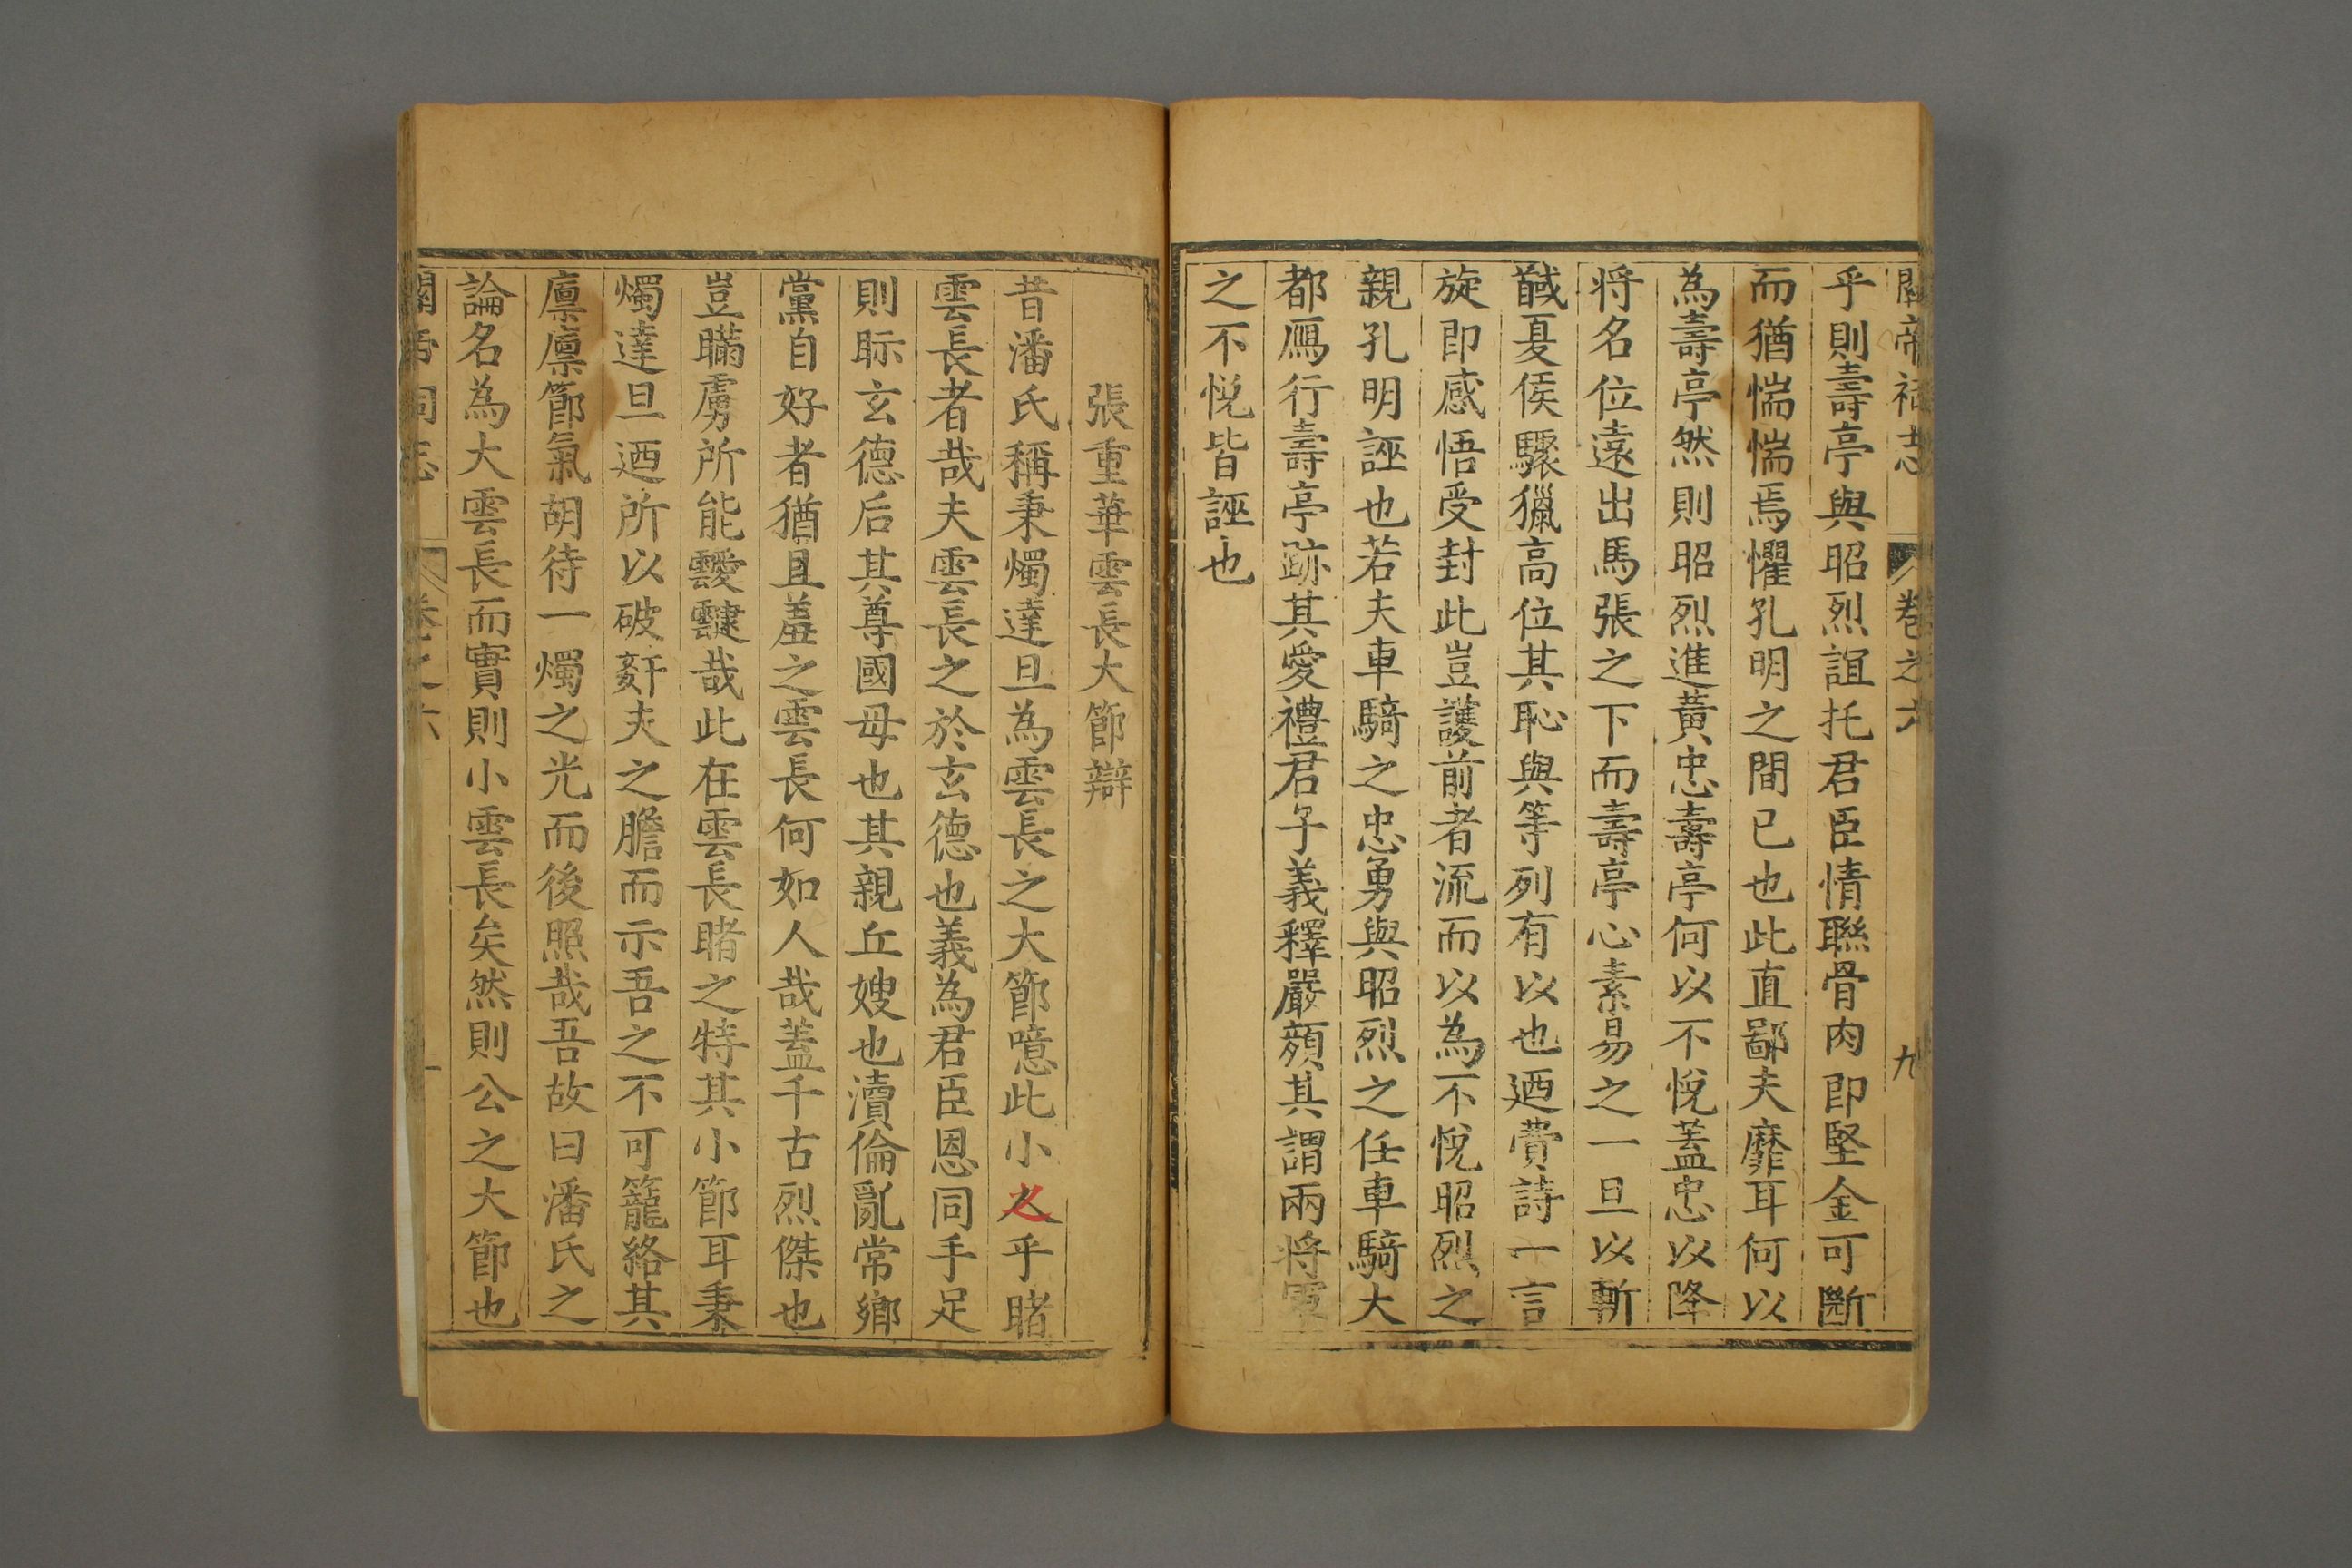 關帝祠志 卷之六 九
乎則壽亭與昭烈誼托君臣情聯骨肉即堅金可斷
而猶惴惴焉懼孔明之間已也此直鄙夫靡耳何以
為壽亭然則昭烈進黃忠壽亭何以不悅蓋忠以降
将名位遠出馬張之下而壽亭心素易之一旦以斬
馘夏侯驟獵高位其恥與等列有以也迺費詩一言
旋即感悟受封此豈護前者流而以為不悅昭烈之
親孔明誣也若夫車騎之忠勇與昭烈之任車騎大
都鴈行壽亭跡其愛禮君子義釋嚴顏其謂兩将
之不悅皆誣也
張重華雲長大節辯
昔潘氏稱秉燭達旦為雲長之大節噫此小之乎睹
雲長者哉夫雲長之於玄德也義為君臣恩同手足
則眎玄德后其尊國母也其親丘嫂也瀆倫亂常鄉
黨自好者猶且羞之雲長何如人哉蓋千古烈傑也
豈瞞虜所能靉靆哉此在雲長睹之特其小節耳秉
燭達旦迺所以破姧夫之膽而示吾之不可籠絡其
廩廩節氣胡待一燭之光而後照哉吾故曰潘氏之
論名為大雲長而實則小雲長矣然則公之大節也
關帝祠志 卷之六